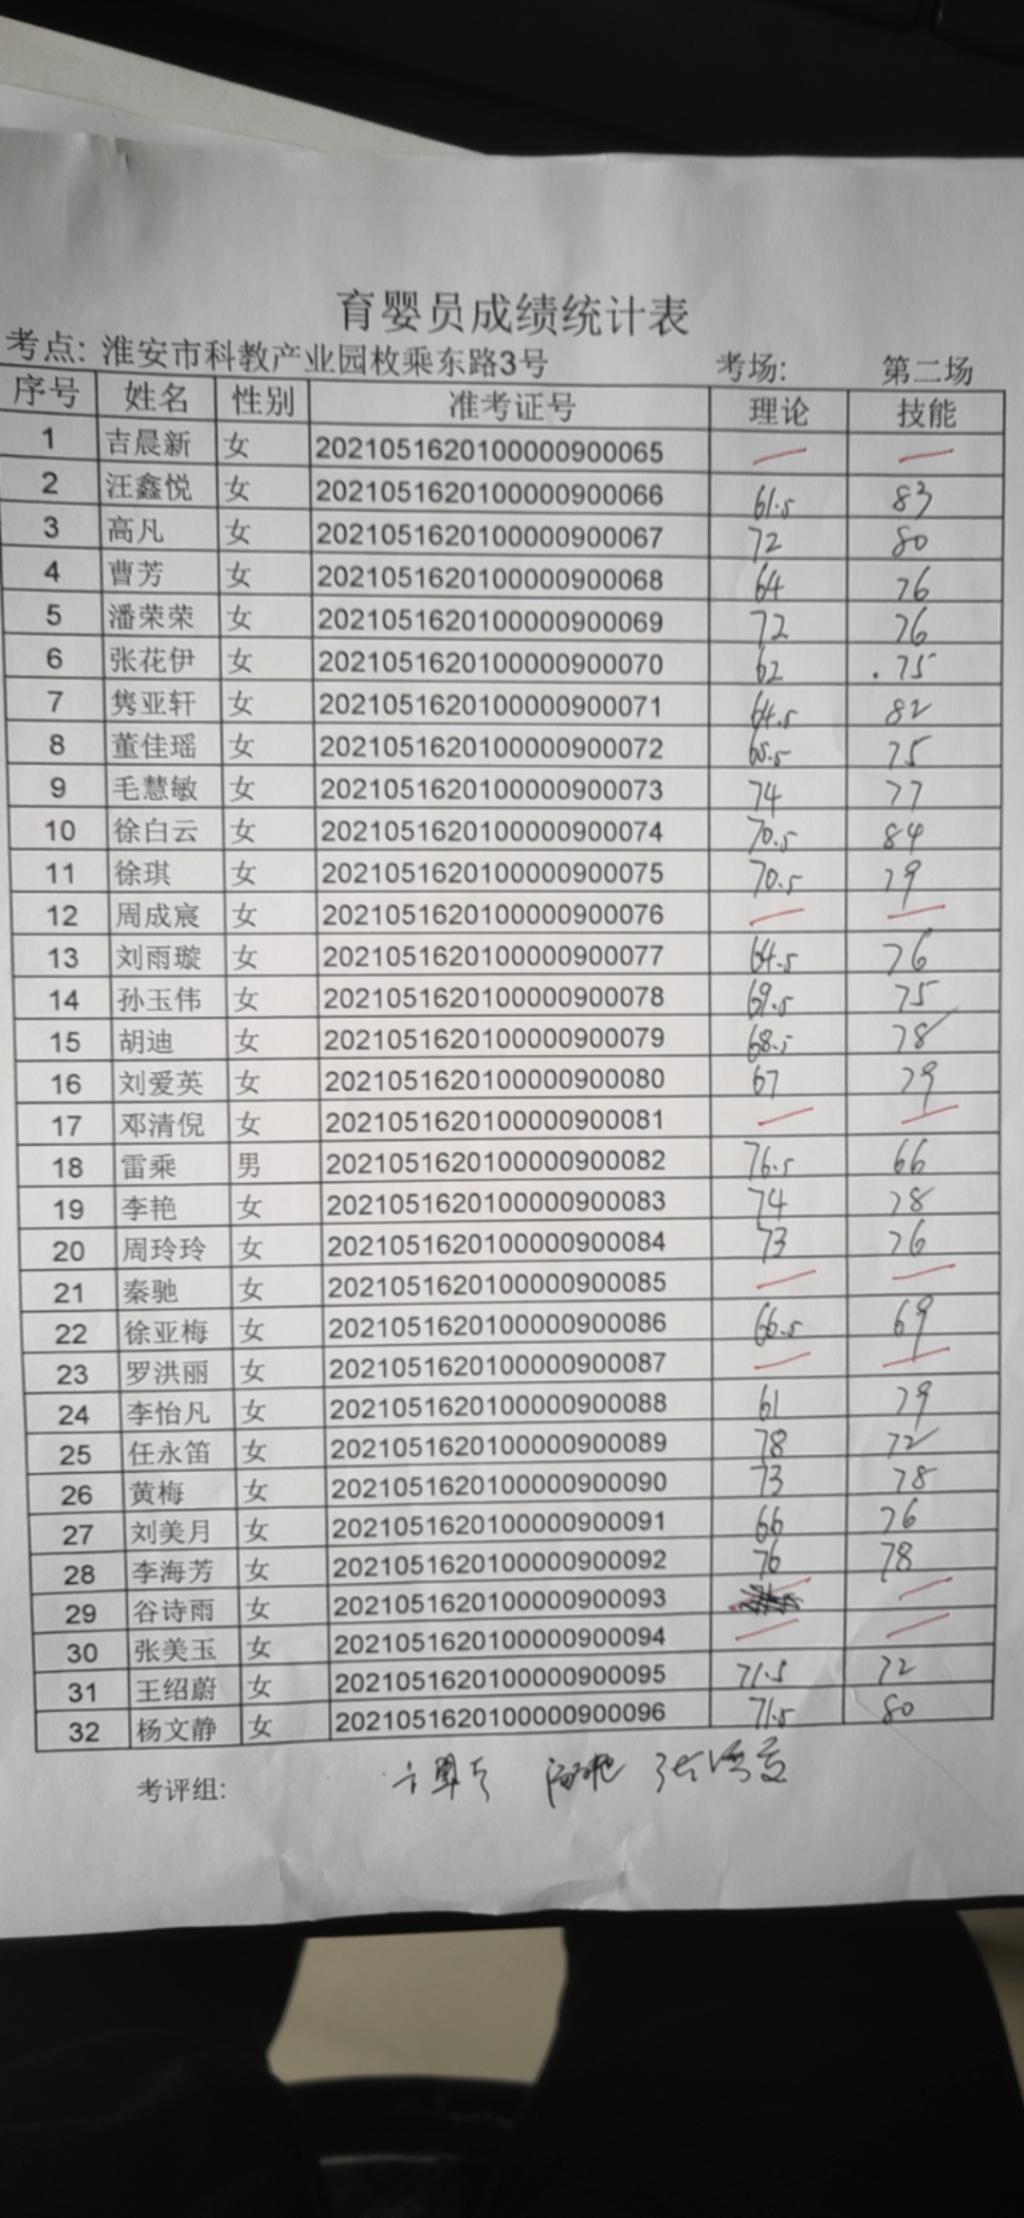 育婴员成绩统计表
考点: 淮安市科教产业园枚乘东路3号 考场: 第二场
序号 姓名 性别 准考证号 理论 技能
1 吉晨新 女 2021051620100000900065 — —
2 汪鑫悦 女 2021051620100000900066 61.5 83
3 高凡 女 2021051620100000900067 72 80
4 曹芳 女 2021051620100000900068 64 76
5 潘荣荣 女 2021051620100000900069 72 76
6 张花伊 女 2021051620100000900070 62 75
7 隽亚轩 女 2021051620100000900071 64.5 82
8 董佳瑶 女 2021051620100000900072 75
9 毛慧敏 女 2021051620100000900073 74 77
10 徐白云 女 2021051620100000900074 70.5 84
11 徐琪 女 2021051620100000900075 70.5 79
12 周成宸 女 2021051620100000900076 — —
13 刘雨璇 女 2021051620100000900077 64.5 76
14 孙玉伟 女 2021051620100000900078 69.5 75
15 胡迪 女 2021051620100000900079 68.5 78
16 刘爱英 女 2021051620100000900080 67 79
17 邓清倪 女 2021051620100000900081 — —
18 雷乘 男 2021051620100000900082 76.5 66
19 李艳 女 2021051620100000900083 74 78
20 周玲玲 女 2021051620100000900084 73 76
21 秦驰 女 2021051620100000900085 — —
22 徐亚梅 女 2021051620100000900086 66.5 69
23 罗洪丽 女 2021051620100000900087 — —
24 李怡凡 女 2021051620100000900088 61 79
25 任永笛 女 2021051620100000900089 78 72
26 黄梅 女 2021051620100000900090 73 78
27 刘美月 女 2021051620100000900091 66 76
28 李海芳 女 2021051620100000900092 76 78
29 谷诗雨 女 2021051620100000900093 — —
30 张美玉 女 2021051620100000900094 — —
31 王绍蔚 女 2021051620100000900095 71.5 72
32 杨文静 女 2021051620100000900096 71.5 80
考评组: